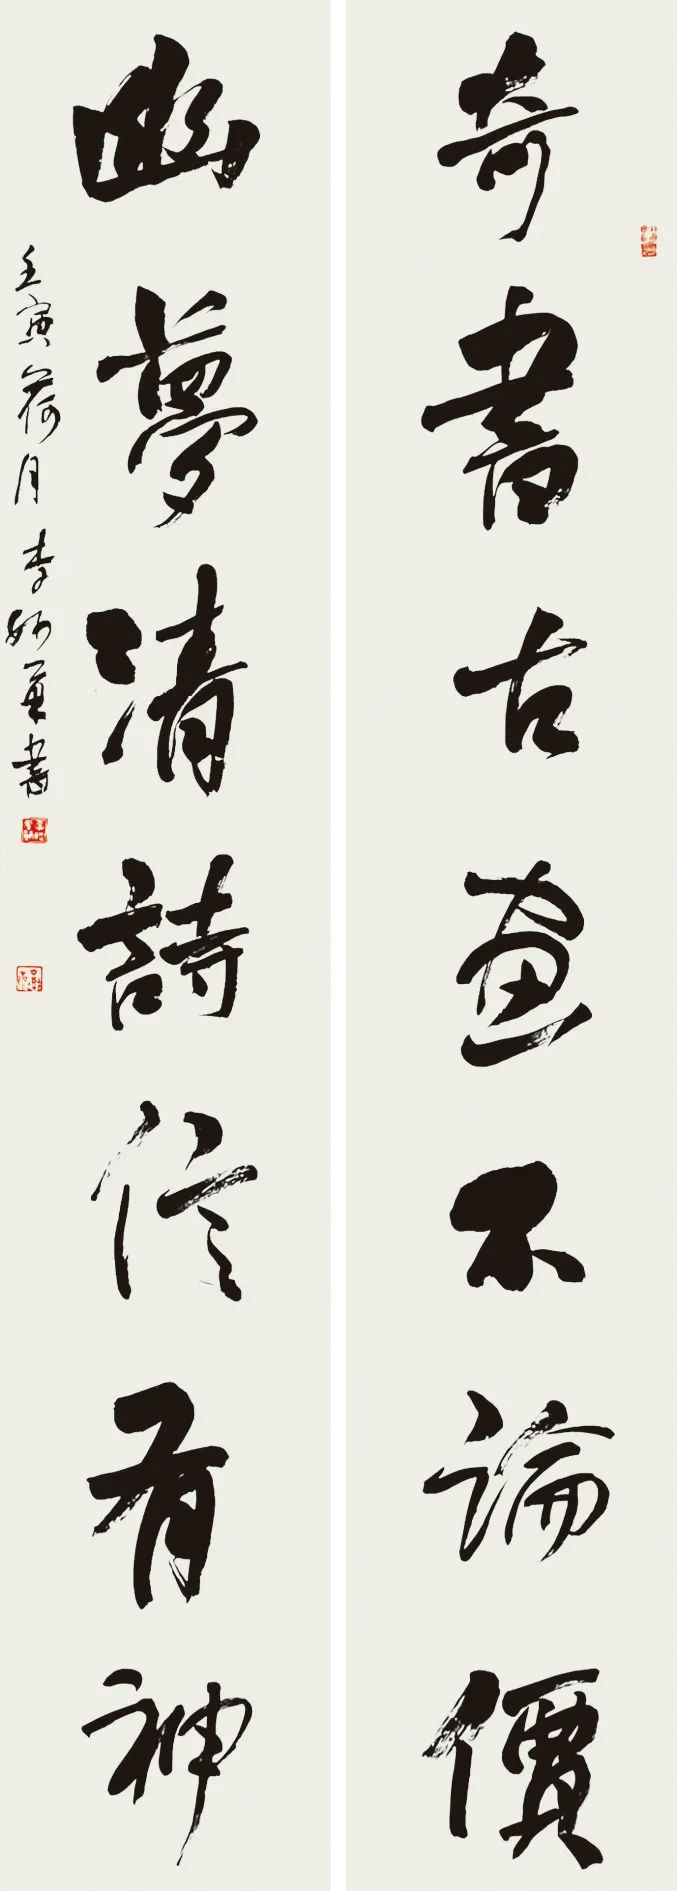 奇書古畫不論價
幽夢清詩信有神
壬寅荷月李妙華書